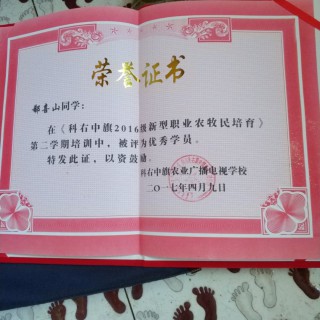 荣誉证书
郜喜山同学：
在《科右中旗2016级新型职业农牧民培育》
第二学期培训中，被评为优秀学员。
特发此证，以资鼓励。
科右中旗农业广播电视学校
二〇一七年四月九日